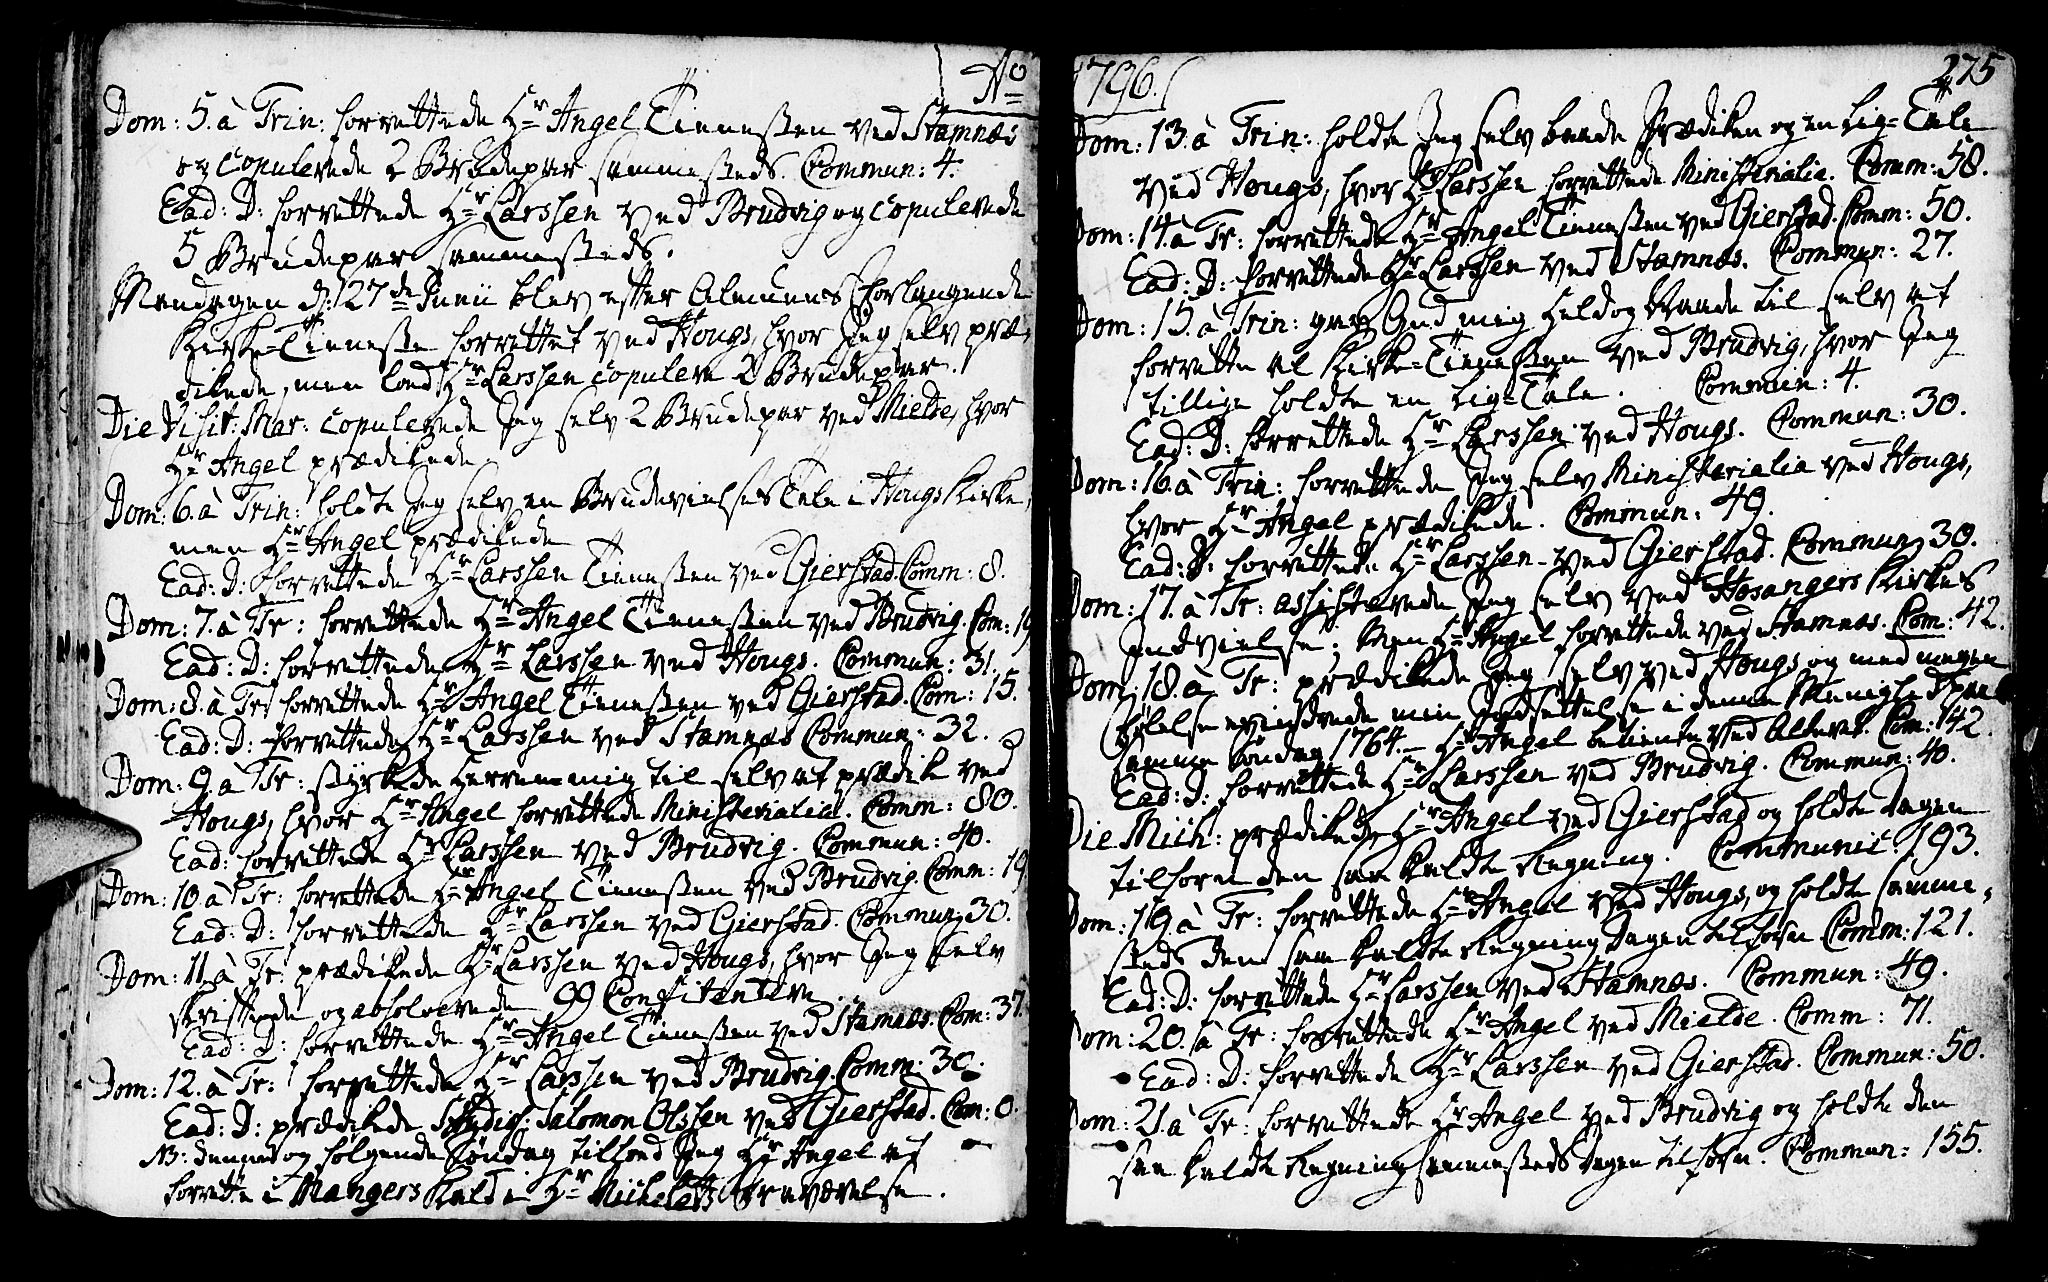 Ao
Dom: 5. à Trin: forrettede Hr Angel Tienesten ved Stamnæs
og copulerede 2 Brudepar sammesteds. Commun: 4.
Ead: D: forrettede Hr Larssen ved Brudvig og copulerede
5 Brudepar sammesteds.
Mandagen d: 27de Junii blev efter Almuens Forlangende
Kirke-Tieneste forrettet ved Hougs, hvor Jeg selv præ-
dikede, men lod Hr Larssen copulere 2 Brudepar.
Die Visit: Mar: copulerede Jeg selv 2 Brudepar ved Mielde, hvor
Hr Angel prædikede.
Dom: 6. à Trin: holdte Jeg selv en Brudevielses Tale i Hougs Kirke,
men Hr Angel prædikede
Ead: D: forrettede Hr Larssen Tienesten ved Gierstad. Comm: 8.
Dom: 7. à Tr: forrettede Hr Angel Tienesten ved Brudvig. Com: 19
Ead: D: forrettede Hr Larssen ved Hougs. Commun: 31.
Dom: 8. à Tr: forrettede Hr Angel Tienesten ved Gierstad. Com: 15.
Ead: D: forrettede Hr Larssen ved Stamnæs Commun: 32.
Dom: 9. à Tr: styrkede Herren mig til selv at prædik ved
Hougs, hvor Hr Angel forrettede Ministerialia. Comm: 80.
Ead: forrettede Hr Larssen ved Brudvig. Commun: 40.
Dom: 10. à Tr: forrettede Hr Angel Tienesten ved Brudvig. Comm: 19
Ead: D: forrettede Hr Larssen ved Gierstad. Commun: 30.
Dom: 11. à Tr: prædikede Hr Larssen ved Hougs, hvor Jeg selv
skriftede og absolverede 99 Confitentere.
Ead: D: forrettede Hr Angel Tienesten ved Stamnæs. Com: 37.
Dom: 12. à Tr: forrettede Hr Larssen ved Brudvig. Comm: 30.
Ead: D: prædikede Studios: Salomon Olssen ved Gierstad. Com: 0.
NB: denne og følgende Søndag tillod Jeg Hr Angel at
forrette i Mangers Kald i Hr Fraværelse.
1796.
275
Dom: 13. à Trin: holdte Jeg selv baade Prædiken og en Lig-Tale
ved Hougs, hvor Hr Larssen forrettede Ministerialia. Comm: 58.
Dom: 14. à Tr: forrettede Hr Angel Tienesten ved Gierstad. Comm: 50.
Ead: D: forrettede Hr Larssen ved Stamnæs. Commun: 27.
Dom: 15. à Trin: gav Gud mig Held og Naade til selv at
forrette al Kirke-Tienesten ved Brudvig, hvor Jeg
tillige holdte en Lig-Tale. Commun: 4.
Ead: D: forrettede Hr Larssen ved Hougs. Commun: 30.
Dom: 16. à Trin: forrettede Jeg selv Ministerialia ved Hougs,
hvor Hr Angel prædikede. Commun: 49.
Ead: D: forrettede Hr Larssen ved Gierstad. Commun: 30.
Dom: 17. à Tr: assisterede Jeg selv ved Hosangers Kirkes
Indvielse; Men Hr Angel forrettede ved Stamnæs. Com: 42.
Dom: 18. à Tr: prædikede Jeg selv ved Hougs og med megen
Følelse erindrede min Indsettelse i denne Menighed paa
samme Søndag 1764. – Hr Angel betiente ved Alteret. Com: 142.
Ead: D: forrettede Hr Larssen ved Brudvig. Commun: 40.
Die Mich: prædikede Hr Angel ved Gierstad og holdte Dagen
tilforn den saa kaldte Regning. Communic: 193.
Dom: 19. à Tr: forrettede Hr Angel ved Hougs, og holdte samme-
steds den saa kaldte Regning Dagen tilforn Comm: 121.
Ead: D: forrettede Hr Larssen ved Stamnæs. Commun: 49.
Dom: 20. à Tr: forrettede Hr Angel ved Mielde. Comm: 71.
Ead: D: forrettede Hr Larssen ved Gierstad. Commun: 50.
Dom: 21. à Tr: forrettede Hr Angel ved Brudvig og holdte den
saa kaldte Regning sammesteds Dagen tilforn. Commun: 155.